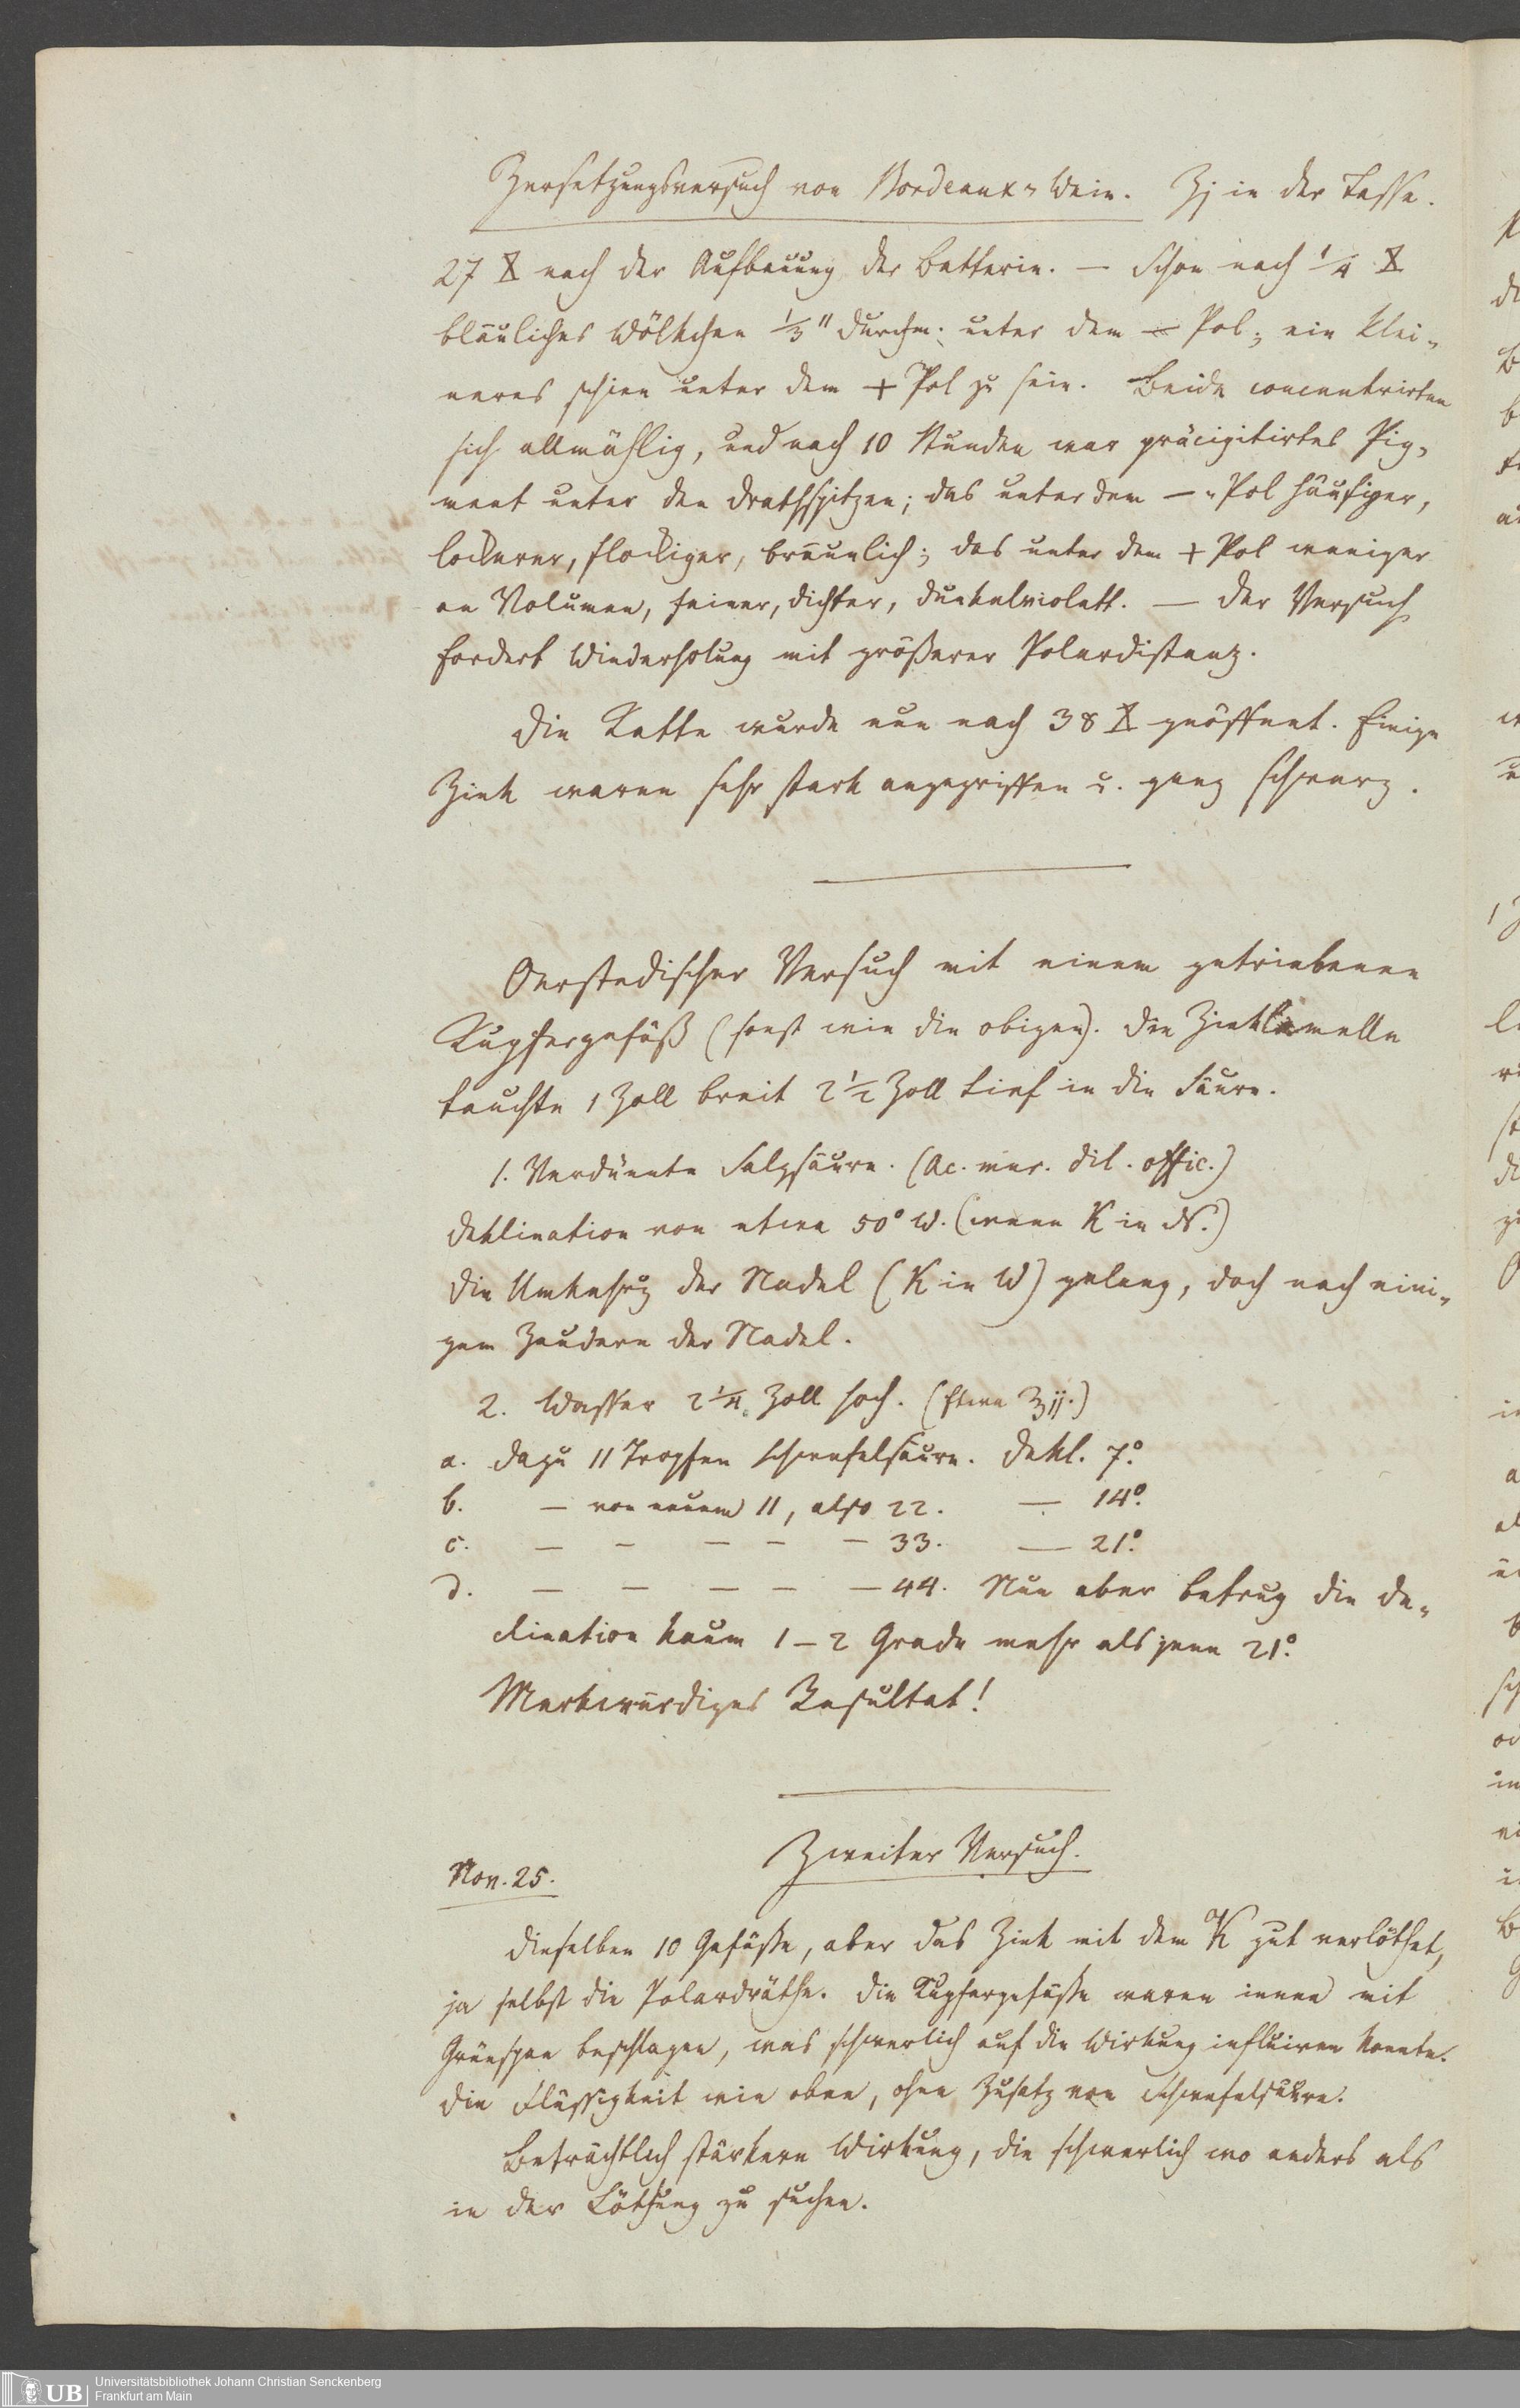 Zersetzungsversuch von Bordeaux-Wein. ℥j in der Tasse.
27 ⧖ nach der Aufbauung der Batterie. — Schon nach 1/4 ⧖
bläuliches Wölkchen 1/3" Durchm. unter dem — Pol; ein klei-
neres schien unter dem + Pol zu sein. Beide concentrirten
sich allmählig, und nach 10 Stunden war präcipitirtes Pig-
ment unter den Drathspitzen; das unter dem — Pol häufiger,
lockerer, flockiger, bräunlich; das unter dem + Pol weniger
an Volumen, feiner, dichter, dunkelviolett. — Der Versuch
fordert Wiederholung mit größerer Polardistanz.
Die Kette wurde nun nach 38 ⧖ geöffnet. Einige
Zink waren sehr stark angegriffen u. ganz schwarz.
Oerstedischer Versuch mit einem getriebenen
Kupfergefäß (sonst wie die obigen). Die Zinklamelle
tauchte 1 Zoll breit 2 1/2 Zoll tief in die Säure.
1. Verdünnte Salzsäure. (Ac. mur. dil. offic.)
Deklination von etwa 50° W. (wenn K in N.)
Die Umkehrg der Nadel (K in W) gelang, doch nach eini-
gem Zaudern der Nadel.
2. Wasser 2 1/4 Zoll hoch. (Etwa ℥ij.)
a. dazu 11 Tropfen Schwefelsäure. Dekl. 7°.
b. — von neuem 11, also 22. — 14°.
c. — — — — — 33. — 21°.
d. — — — — — 44. Nun aber betrug die De-
clination kaum 1–2 Grade mehr als jene 21°.
Merkwürdiges Resultat!
Zweiter Versuch.
Nov. 25.
Dieselben 10 Gefäße, aber das Zink mit dem K gut verlöthet,
ja selbst die Polardräthe. Die Kupfergefäße waren innen mit
Grünspan beschlagen, was schwerlich auf die Wirkung influiren konnte.
Die Flüssigkeit wie oben, ohne Zusatz von Schwefelsäure.
Beträchtlich stärkere Wirkung, die schwerlich wo anders als
in der Löthung zu suchen.
UB
Universitätsbibliothek Johann Christian Senckenberg
Frankfurt am Main